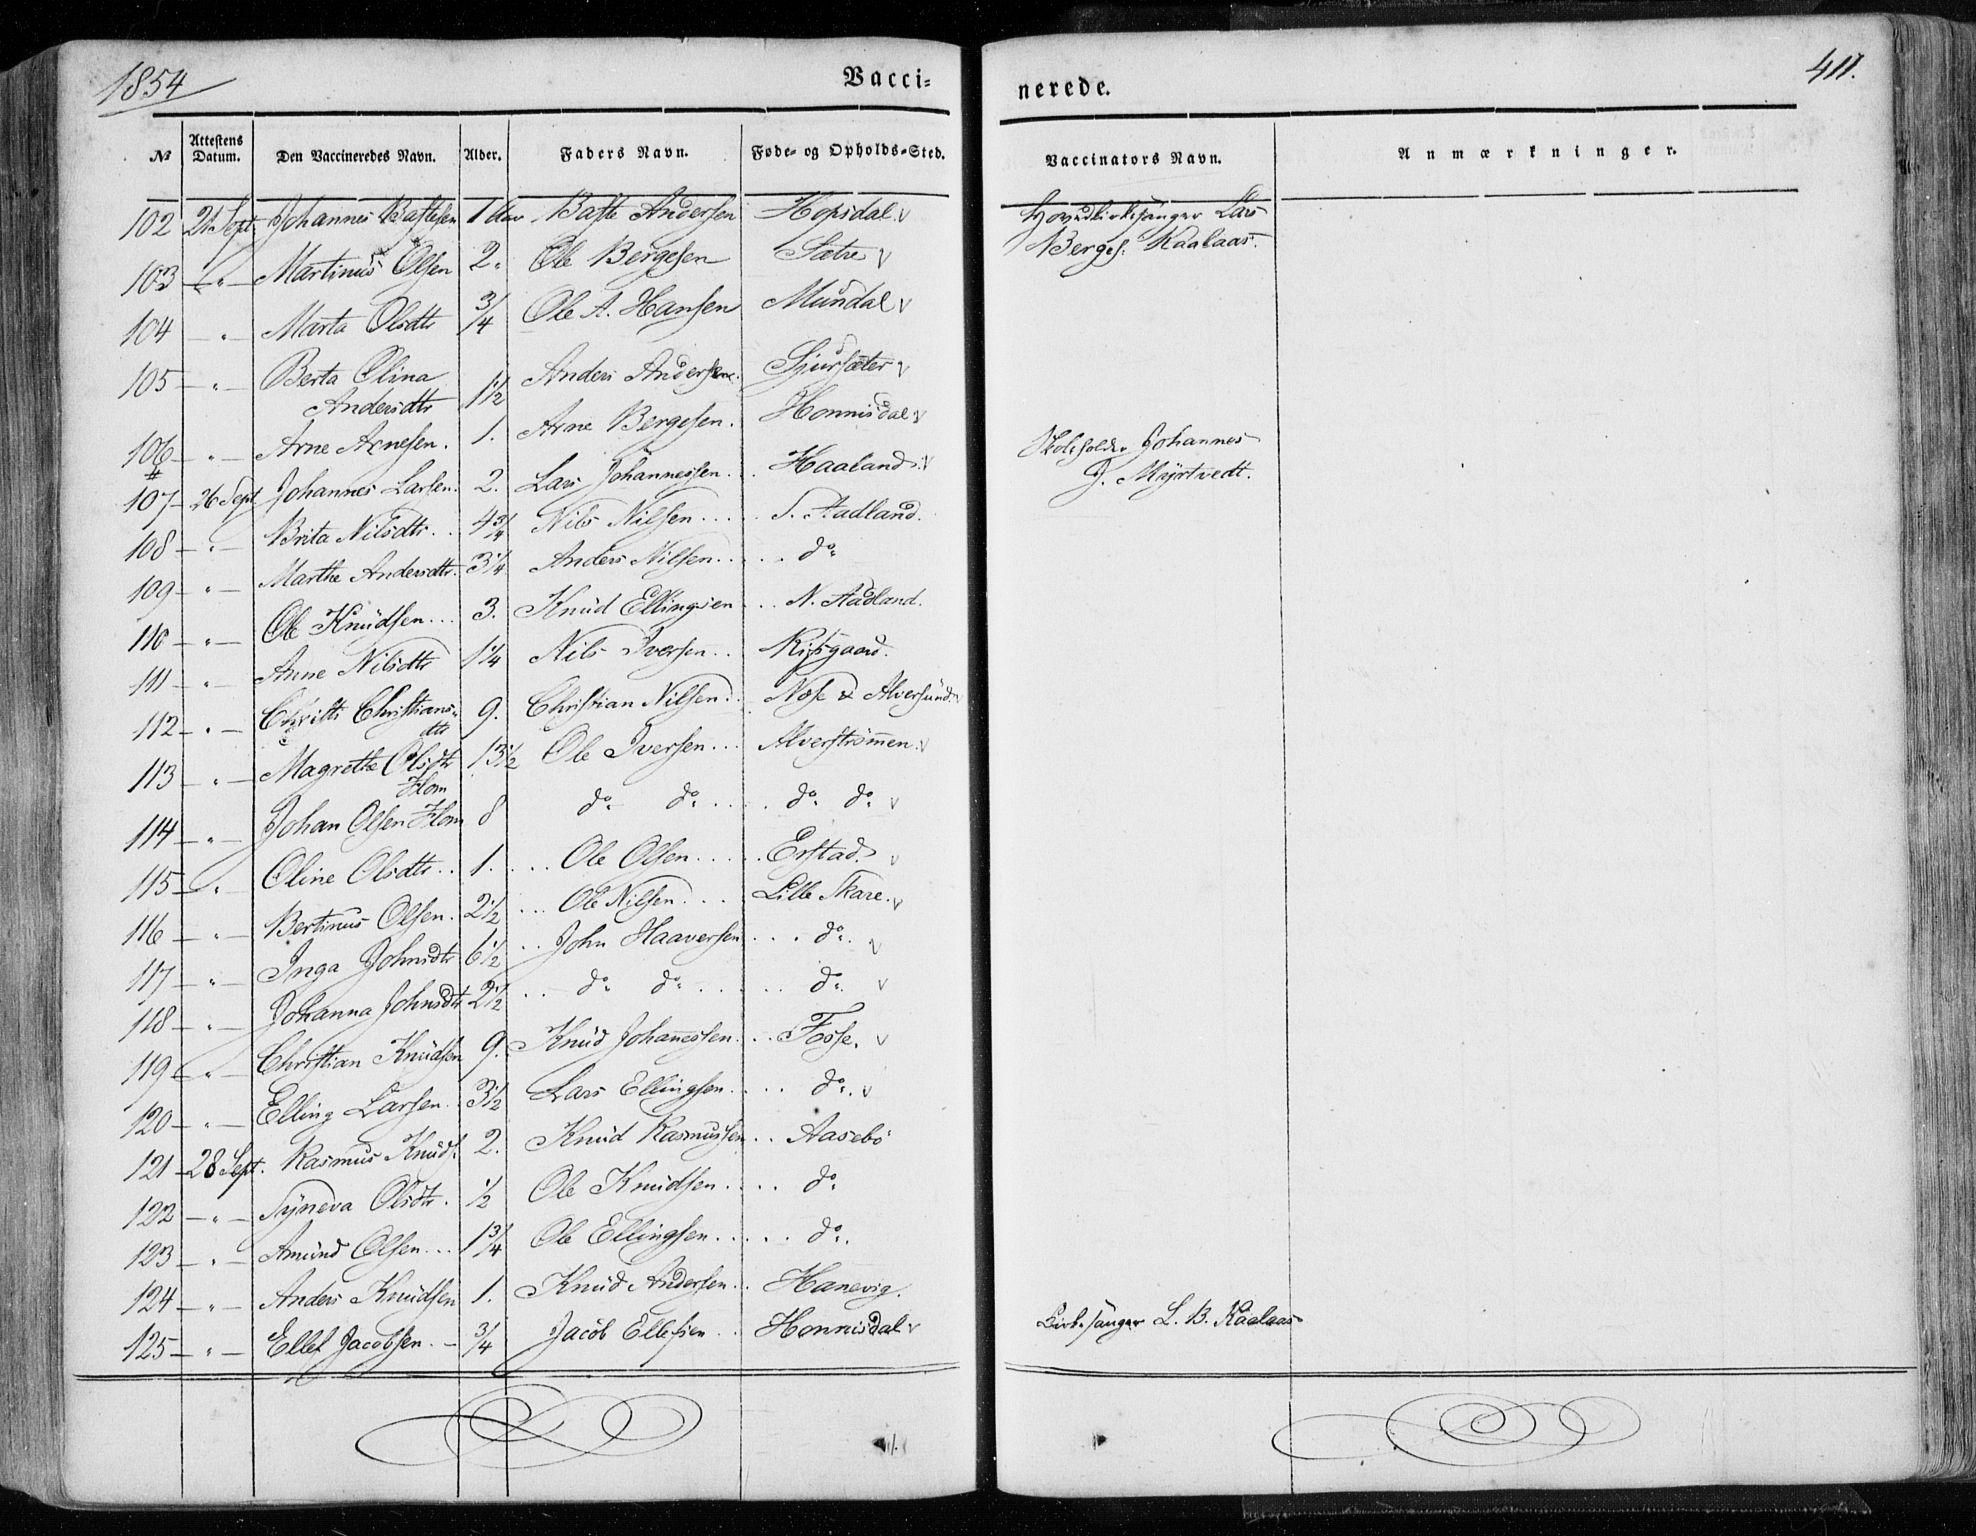 1854
Vacci-
nerede.
411.
№ Attestens Datum. Den Vaccineredes Navn. Alder. Faders Navn. Føde- og Opholds-Sted. Vaccinators Navn. Anmærkninger.
102 21 Sept Johannes Bastesen 1 Aar Baste Andersen Hopsdal v Lars
Berges. Kaalaas.
103 — " — Martinus Olsen 2. Ole Bergesen Sætre v
104 — " — Marta Olsdtr 3/4 Ole A. Hansen Mundal v
105 — " — Berta Olina
Andersdtr 1 1/2 Anders Andersen. Sjursæter v
106 — " — Arne Arnesen. 1. Arne Bergesen. Honnisdal. v
#
107 — 26 Sept Johannes Larsen. 2. Lars Johannessen. . Haaland. v Skoleholder Johannes
J. Myrtvedt.
108 — " — Brita Nilsdtr . . 4 3/4 Nils Nilsen . . . . S. Aadland.
109 — " — Marthe Andersdtr. 3 1/4 Anders Nilsen . . . . . do
110 — " — Ole Knüdsen . . . 3. Knüd Ellingsen . . N. Aadland.
111 — " — Anne Nilsdtr 1 1/4 Nils Iversen . . Risgaard.
112 — " — Christi Christians-
dtr 9. Christian Nilsen . . Nose & Alversünd. v
113 — " — Magrethe Olsdtr
Flom 13 1/2 Ole Iversen . . . Alverstrømmen. v
114 — " — Johan Olsen Flom 8 do do . . . . do do v
115 — " — Oline Olsdtr . . 1. . . . Ole Olsen . . . . . Erstad. v
116 — " — Bertinus Olsen. 2 1/2 . . . Ole Nilsen . . . . Lille Skare. v
117 — " — Inga Johnsdtr 6 1/2 . . John Haaversen . . . do. v
118 — " — Johanna Johnsdtr 2 1/2 . . do do . . . . . do. v
119 — " — Christian Knüdsen 9. Knüd Johannessen . . . Fosse. v
120 — " — Elling Larsen . . 3 1/2 Lars Ellingsen . . . . do. v
121 — 28 Sept. Rasmus Knüds. 2. Knüd Rasmussen . . Aasebø
122 — " — Syneva Olsdtr. 1/2 Ole Knüdsen . . . . do
123 — " — Amünd Olsen . . . 1 3/4 Ole Ellingsen . . . . . do.
124 — " — Anders Knüdsen 1. Knüd Andersen . . Hanevig.
125 — " — Ellef Jacobsen. — 3/4 Jacob Ellefsen . . Honnisdal v Kirkesanger L. B. Kaalaas